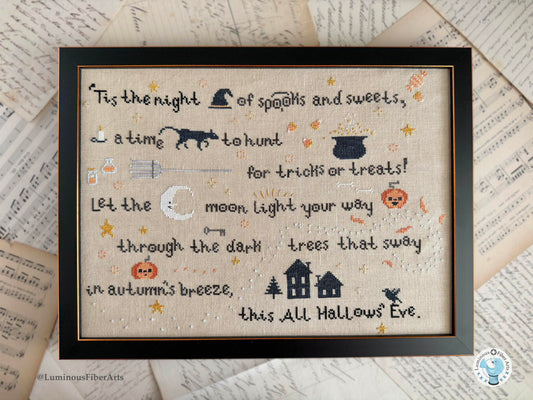 'Tis the night of spooks and sweets,
a time to hunt
for tricks or treats!
Let the moon light your way
through the dark trees that sway
in autumn's breeze,
this All Hallows' Eve.
@LuminousFiberArts
Luminous Fiber Arts